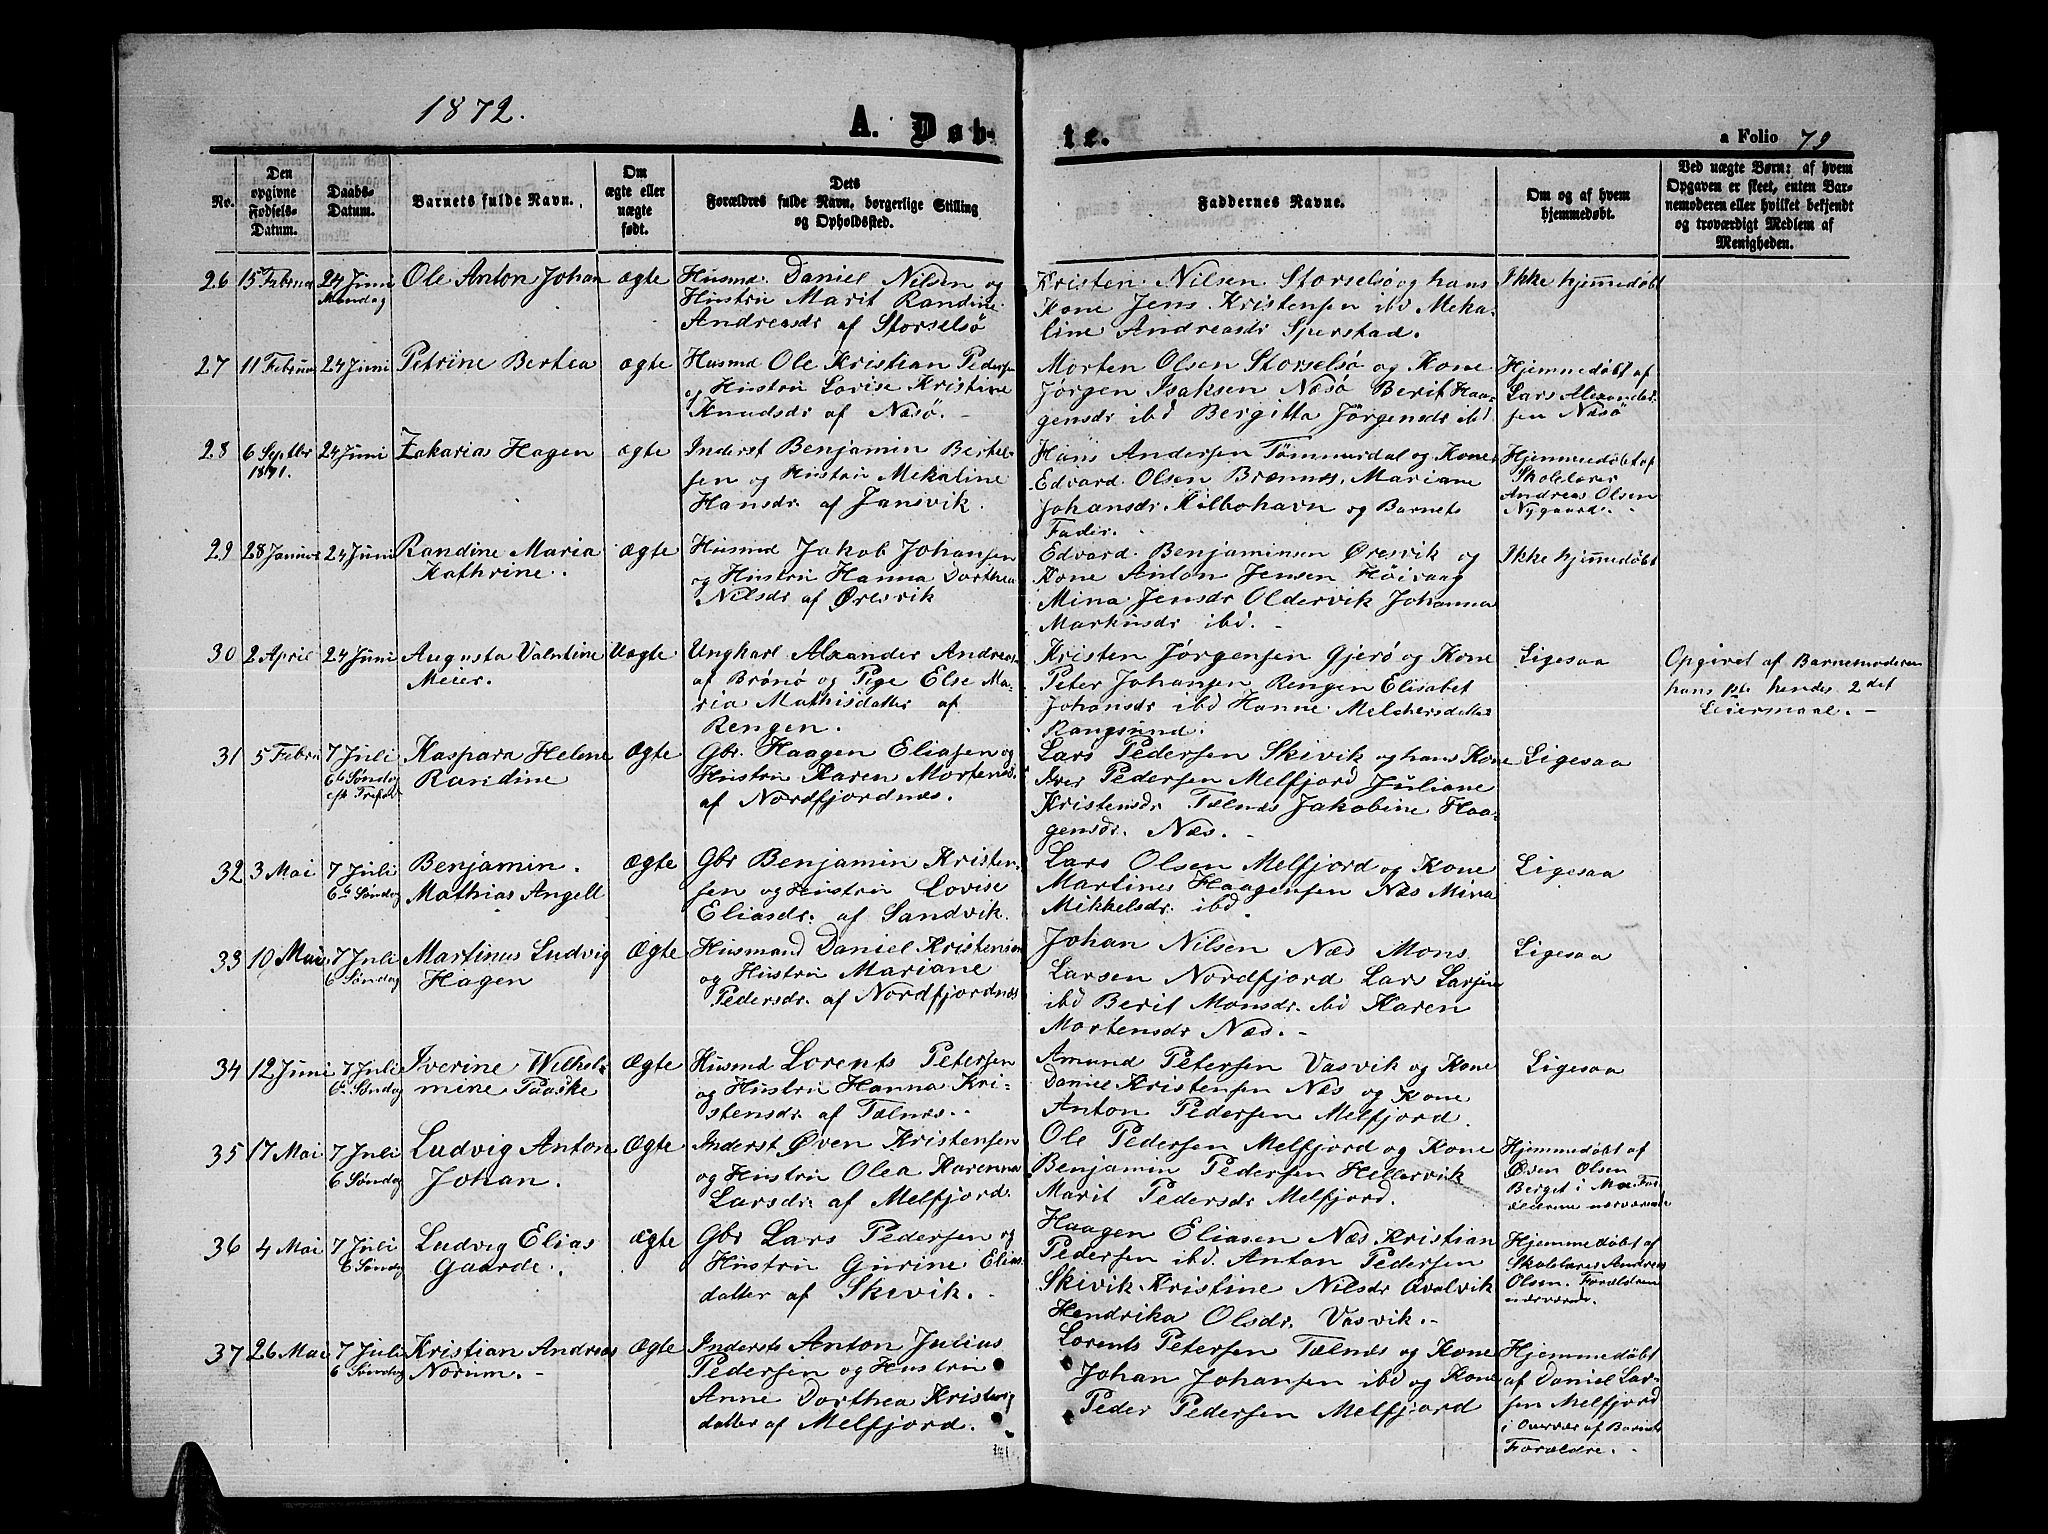 1872.
A. Døb-
te.
a Folio 79
No.
Den
opgivne
Fødsels-
Datum.
Daabs-
Datum.
Barnets fulde Navn.
Om
ægte eller
uægte
født.
Dets
Forældres fulde Navn, borgerlige Stilling
og Opholdssted.
Faddernes Navne.
Om og af hvem
hjemmedøbt.
Ved uægte Børn: af hvem
Opgaven er skeet, enten Bar-
nemoderen eller hvilket bekjendt
og troværdigt Medlem af
Menigheden.
26
15 Februar
24 Juni
Mandag
Ole Anton Johan
ægte
Husmd. Daniel Nilsen og
Hustru Marit Randine
Andreasdr af Storselsø
Kristen Nilsen Storselsø og hans
Kone Jens Kristensen ibd Meka-
line Andreasdr Sperstad.
Ikke hjemmedøbt
27
11 Februar
24 Juni
Petrine Bertea
ægte
Husmd Ole Kristian Peders̄en
og Hustru Lovise Kristine
Knudsdr af Næsø.
Morten Olsen Storselsø og Kone
Jørgen Isaksen Næsø Berit Haa-
gensdr ibd Bergitta Jörgensdr ibd
Hjemmedøbt af
Lars Alexander-
sen Næsø
28
6 Septbr
1871.
24 Juni
Zakarias Hagen
ægte
Inderst Benjamin Bertel-
sen og Hustru Mekaline
Hansdr. af Jansvik.
Hans Andersen Tømmerdal og Kone
Edvard Olsen Brænnes, Mariane
Johansdr. Kilbohavn og Barnets
Fader.
Hjemmedøbt af
Skolelærer
Andreas Olsen
Nygaard.
29
28 Januar
24 Juni
Randine Maria
Kathrine.
ægte
Husmd Jakob Johansen
og Hustru Hanna Dorthea
Nilsdr af Øresvik
Edvard Benjaminsen Øresvik og
Kone Anton Jensen Høivaag
Mina Jensdr Oldervik Johanna
Markusdr ibd.
Ikke hjemmedøbt
30
2 April
24 Juni
Augusta Valentine
Meier.
Uægte
Ungkarl Alexander Andreas-
af Brønø og Pige Else Ma-
ria Mathisdatter af
Rengen.
Kristen Jørgensen Gjerø og Kone
Peter Johansen Rengen Elisabet
Johansdr ibd Hanne Melchersdatter
Rangsund.
Ligesaa
Opgivet af Barnemoderen
hans 1ste hendes 2det
Leiermaal.
31
5 Febru
7 Juli
6te Søndag
eft Trefold
Kaspara Helene
Randine
Ægte
Gbr. Haagen Eliasen og
Hustru Karen Mortensd.
af Nordfjordnæs.
Lars Pedersen Skivik og hans Kone
Iver Pedersen Melfjord Juliane
Kristensdr Tælnes Jakobine Haa-
gensdr. Næs.
Ligesaa
32
3 Mai
7 Juli
6te Søndag
Benjamin.
Mathias Angell
ægte
Gbr Benjamin Kristen-
sen og Hustru Lovise
Eliasdr. af Sandvik.
Lars Olsen Melfjord og Kone
Martines Haagensen Næs Mina
Mikkelsdr. ibd.
Ligesaa
33
10 Mai
7 Juli
6 Søndag
Martinus Ludvig
Hagen
Ægte
Husmand Daniel Kristensen
og Hustru Mariane
Pedersdr. af Nordfjordnæs
Johan Nilsen Næs Mons
Larsen Nordfjord Lars Larsen
ibd Berit Monsdr. ibd Karen
Mortensdr Næs.
Ligesaa
34
12 Juni
7 Juli
6te Søndag
Iverine Wilhel-
mine Paaske
Ægte
Husmd Lorents Petersen
og Hustru Hanna Kri-
stensdr. af Tælnes.
Amund Petersen Vasvik og Kone
Daniel Kristensen Næs og Kone
Anton Pedersen Melfjord.
Ligesaa
35
17 Mai
7 Juli
6 Søndag
Ludvig Anton
Johan.
Ægte
Inderst Øven Kristensen
og Hustru Olea Karenna
Larsdr. af Melfjord.
Ole Pedersen Melfjord og Kone
Benjamin Pedersen Hellervik
Marit Pedersdr. Melfjord.
Hjemmedøbt af
Øven Olsen
Berget i Mo.
36
4 Mai
7 Juli
6 Søndag
Ludvig Elias
Gaarde.
ægte
Gbr Lars Pedersen og
Hustru Gurine Elias
datter af Skivik.
Haagen Eliasen Næs Kristian
Pedersen ibd. Anton Pedersen
Skivik Kristine Nilsdr Qvalvik
Hendrika Olsdr. Vasvik.
Hjemmedøbt af
Skolelærer Andreas
Olsen. Forældrene
nærværende.
37
26 Mai
7 Juli
6 Søndag
Kristian Andreas
Norum.
Ægte
Inderst Anton Julius
Pedersen og Hustru
Anne Dorthea Kristens
datter af Melfjord.
Lorents Petersen Tælnes og Kone
Johan Johansen ibd og Kone
Peder Pedersen Melfjord
Hjemmedøbt
af Daniel Lar-
sen Melfjord
i Overvær af Barnets
Forældre.